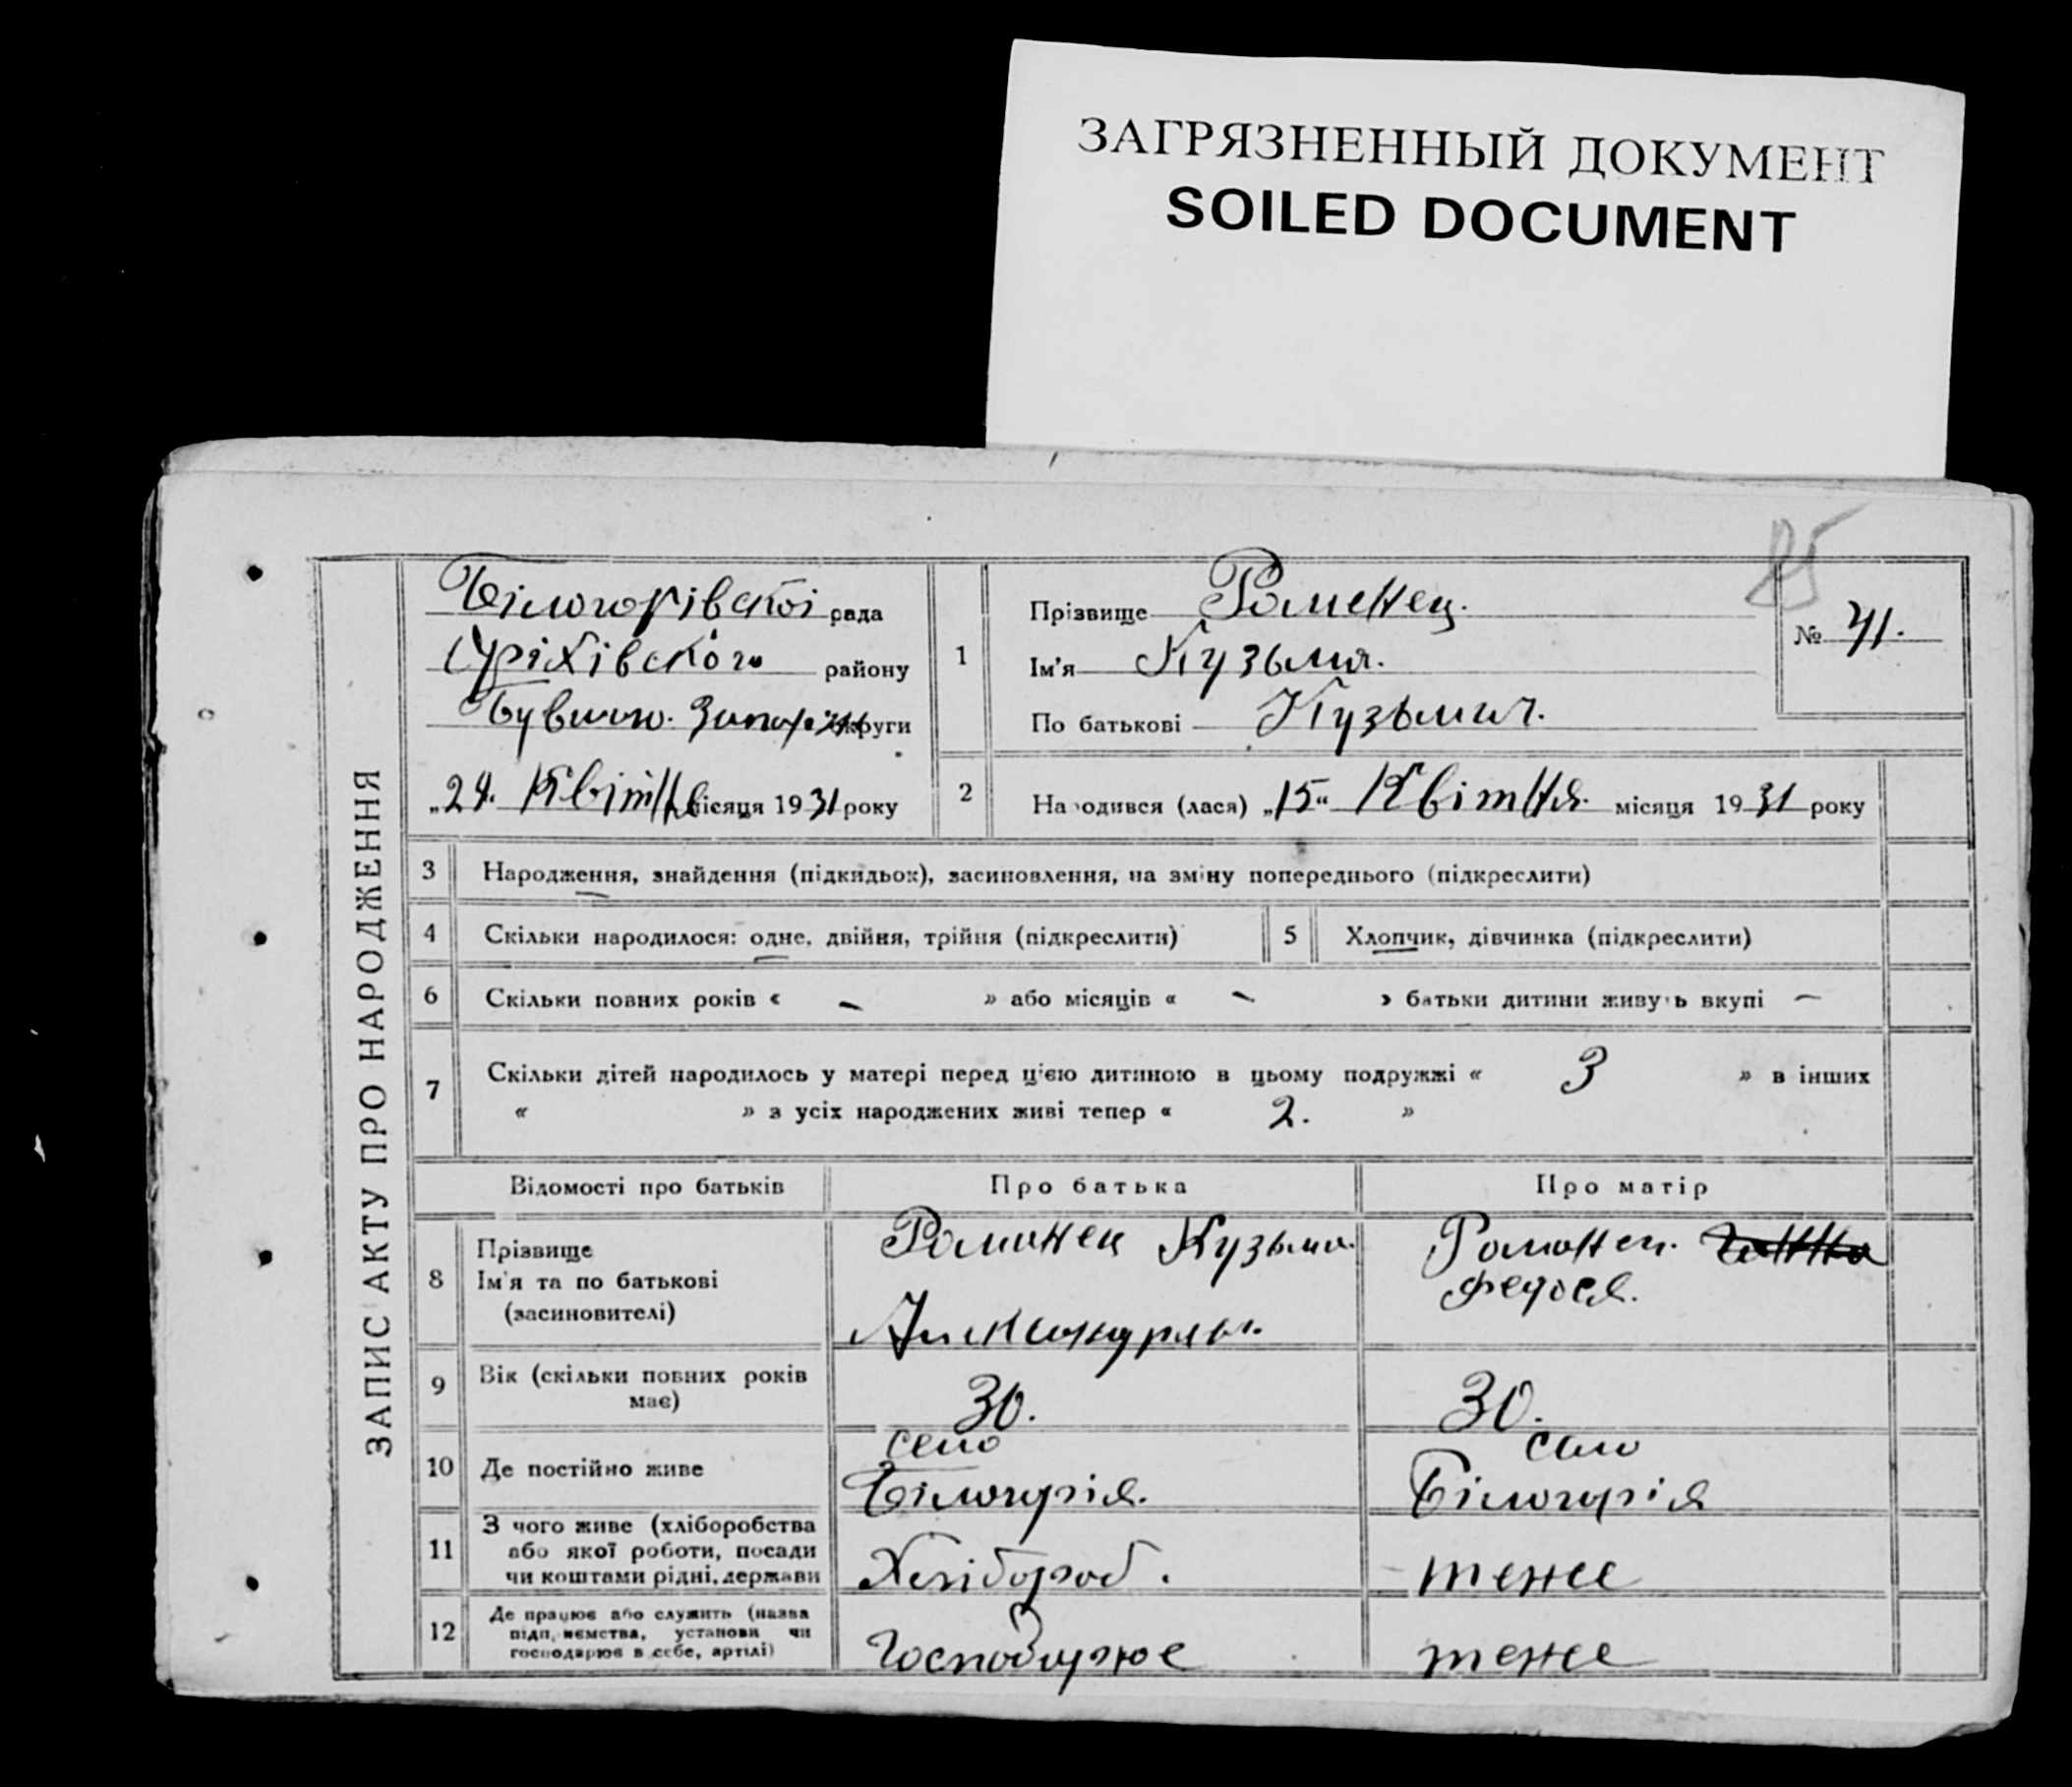 ЗАГРЯЗНЕННЫЙ ДОКУМЕНТ
SOILED DOCUMENT
85
ЗАПИС АКТУ ПРО НАРОДЖЕННЯ
Білогорівської рада
Оріхівського району
Бувшою. Запоріж округи
„24. Квітня місяця 1931 року
1
Прізвище Роменец.
Ім'я Кузьма.
По батькові Кузьмич.
№ 41.
2
Народився (лася) „15“ Квітня. місяця 1931 року
3 Народження, знайдення (підкидьок), засиновлення, на зміну попереднього (підкреслити)
4 Скільки народилося: одне, двійня, трійня (підкреслити)
5 Хлопчик, дівчинка (підкреслити)
6 Скільки повних років « – » або місяців « – » батьки дитини живуть вкупі –
7 Скільки дітей народилось у матері перед цією дитиною в цьому подружжі « 3 » в інших
« » з усіх народжених живі тепер « 2. »
Відомості про батьків Про батька Про матір
8 Прізвище
Ім'я та по батькові
(засиновителі)
Роменец Кузьма.
Роменец.
Федося.
9 Вік (скільки повних років
має)
30.
30.
10 Де постійно живе
село
Білогорія.
село
Білогорія
11 З чого живе (хліборобства
або якої роботи, посади
чи коштами рідні, держави
Хлібороб.
теже
12 Де працює або служить (назва
підприємства, установи чи
господарює в себе, артілі)
Господарює
теже